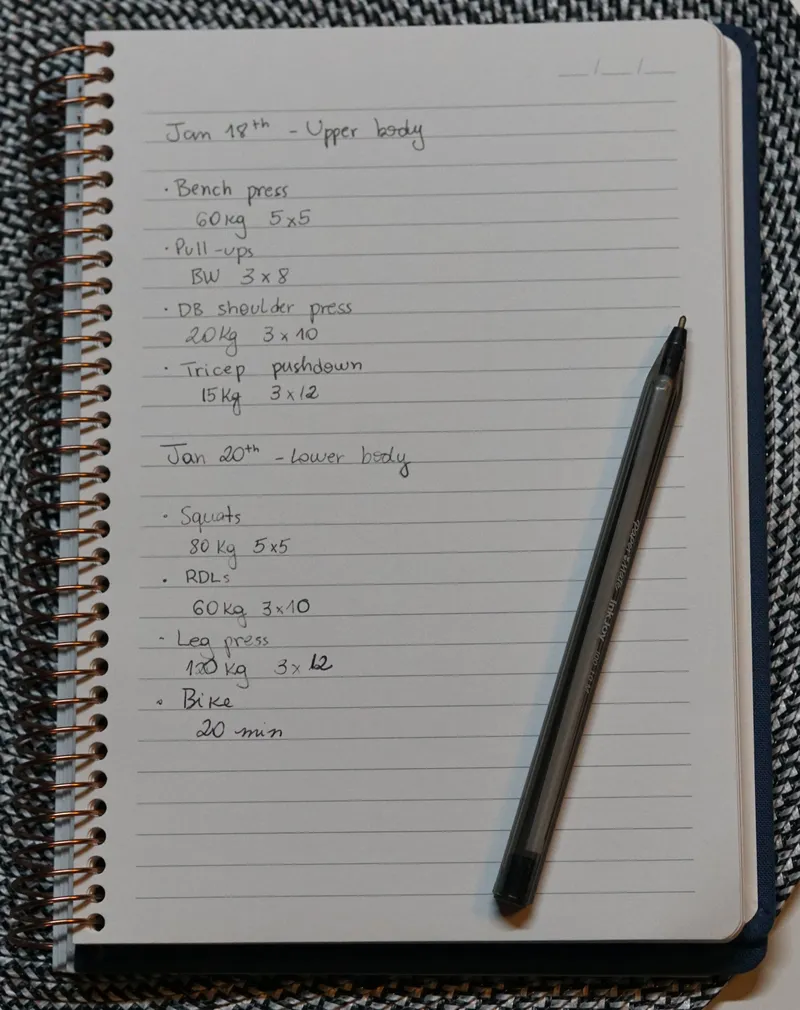 __/__/__
Jan 18th - Upper body
· Bench press
60kg 5x5
· Pull-ups
BW 3x8
· DB shoulder press
20kg 3x10
· Tricep pushdown
15kg 3x12
Jan 20th - Lower body
· Squats
80kg 5x5
· RDLs
60kg 3x10
· Leg press
kg 3x12
· Bike
20 min
InkJoy